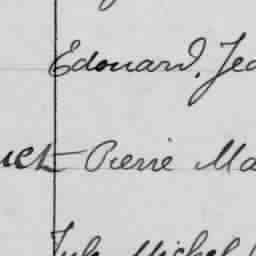 Edouard, Jea
uet Pierre Ma
Jule Michel